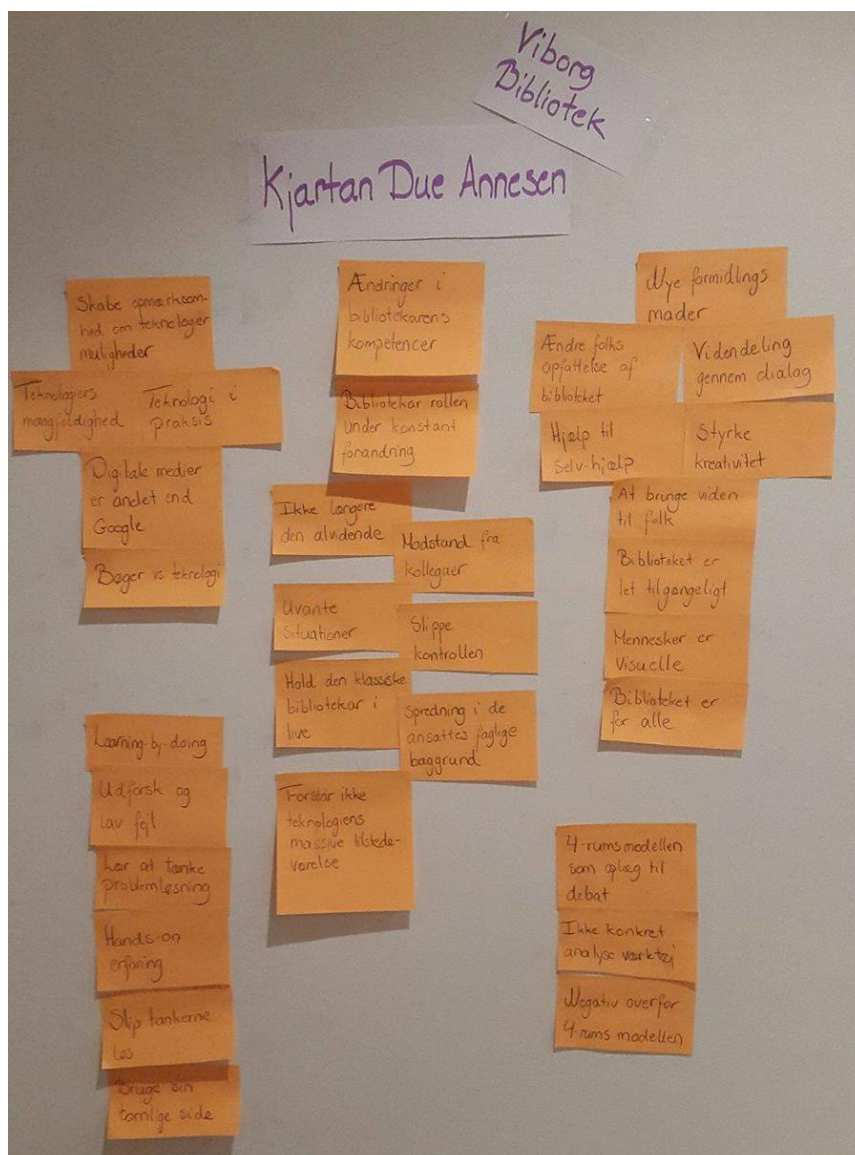 Viborg
Bibliotek
Kjartan Due Annesen
Skabe opmærksom-
hed om teknologier
muligheder
Teknologiers
mangfoldighed
Teknologi i
praksis
Digitale medier
er andet end
Google
Bøger vs teknologi
Learning-by-doing
Udforsk og
lav fejl
Lær at tænke
problemløsning
Hands-on
erfaring
Slip tankerne
løs
Bruge sin
barnlige side
Ændringer i
bibliotekarens
kompetencer
Bibliotekar rollen
under konstant
forandring
Ikke længere
den alvidende
Modstand fra
kollegaer
Uvante
situationer
Slippe
kontrollen
Hold den klassiske
bibliotekar i
live
Spredning i de
ansattes faglige
baggrund
Forstår ikke
teknologiens
massive tilstede-
værelse
Nye formidlings
måder
Ændre folks
opfattelse af
biblioteket
Videndeling
gennem dialog
Hjælp til
selv-hjælp
Styrke
kreativitet
At bringe viden
til folk
Biblioteket er
let tilgængeligt
Mennesker er
visuelle
Biblioteket er
for alle
4-rums modellen
som oplæg til
debat
Ikke konkret
analyse værktøj
Negativ overfor
4-rums modellen